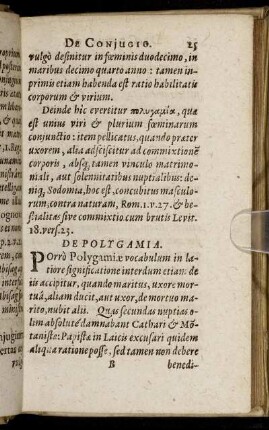 DE CONJUGIO. 25
vulgò definitur in fœminis duodecimo, in
maribus decimo quarto anno: tamen in-
primis etiam habenda est ratio habilitatis
corporum & virium.
Deinde hic evertitur πολυγαμία, quæ
est unius viri & plurium fœminarum
conjunctio: item pellicatus, quando præter
uxorem, alia adsciscitur ad commixtionē
corporis, absq; tamen vinculo matrimo-
niali, aut solennitatibus nuptialibus: de-
niq; Sodomia, hoc est, concubitus masculo-
rum, contra naturam, Rom. 1. v. 27. & be-
stialitas sive commixtio cum brutis Levit.
18. vers. 23.
DE POLYGAMIA.
Porrò Polygamiæ vocabulum in la-
tiore significatione interdum etiam de
iis accipitur, quando maritus, uxore mor-
tuâ, aliam ducit, aut uxor, de mortuo ma-
rito, nubit alii. Quas secundas nuptias o-
lim absolutè damnabant Cathari & Mō-
tanistæ: Papistæ in Laicis excusari quidem
aliqua ratione posse, sed tamen non debere
B benedi-